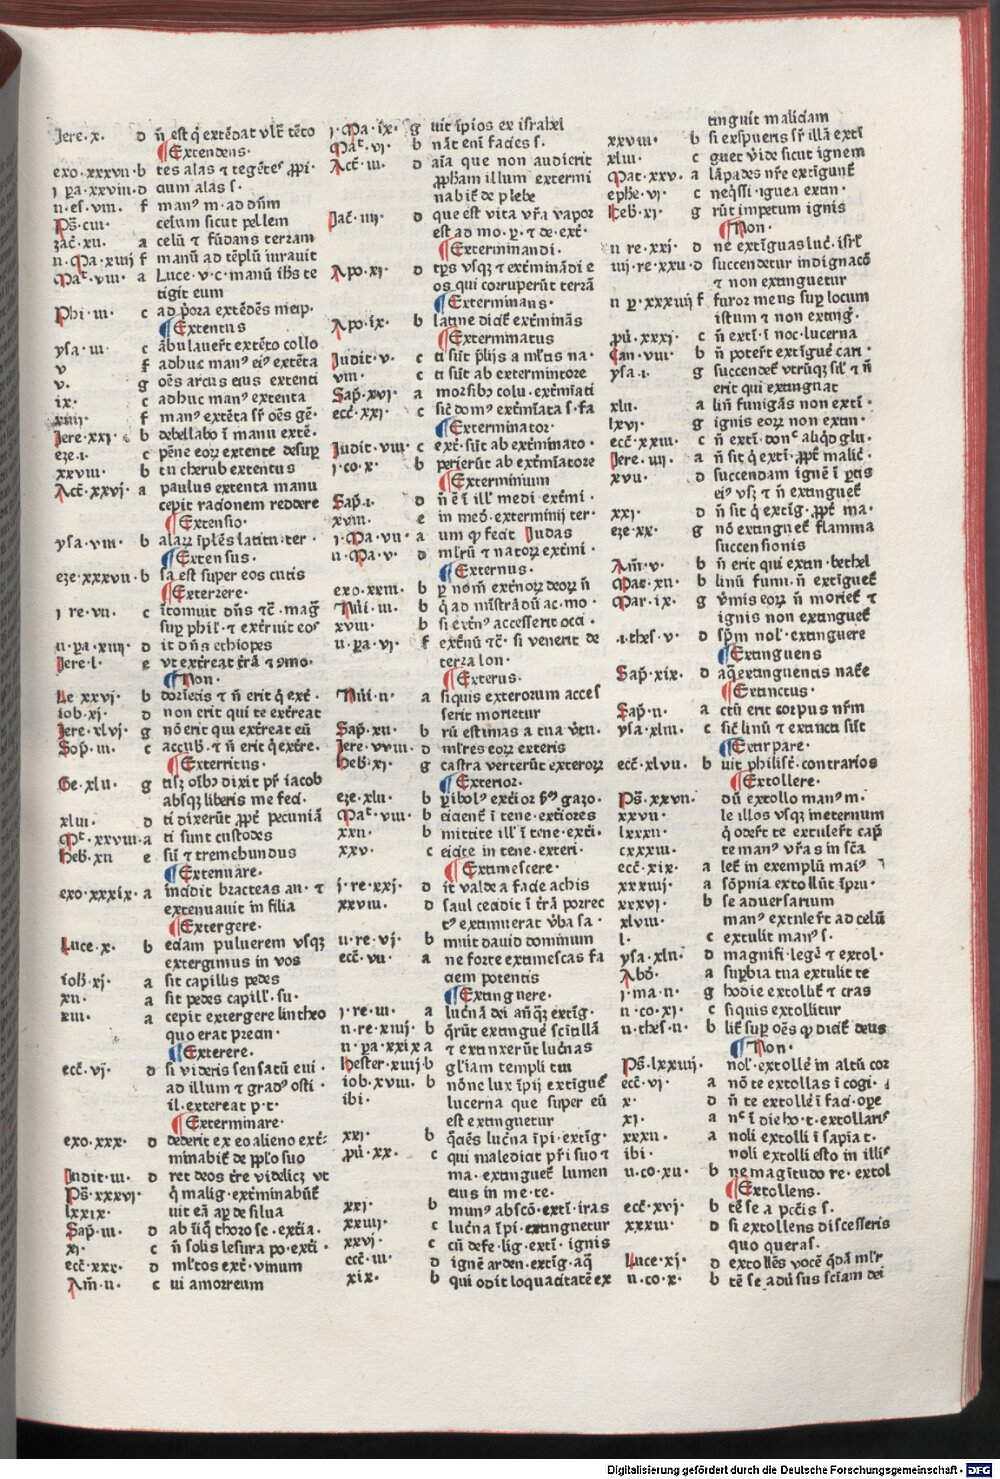 Jere·x· d n̄ est q̇ extēdat vlt̄ tēto
¶Extendens·
exo·xxxvii·b tes alas ⁊ tegētes ꝓpi·
i pa·xxviii·d cum alas s·
n·es·viii· f manꝰ m·ad dn̄m
Ps̄·ciii· celum sicut pellem
zac̄·xii· a celū ⁊ fūdans terram
n·Ma·xiiij f manū ad tēplū iurauit
Mat·viii· a Luce·v·c·manū ih̄s te
tigit eum
Phi·iii· c ad pͥora extēdēs meip·
¶Extentus
ysa·iii c ābulauer̄t extēto collo
v f adhuc manꝰ eiꝰ extēta
v· g oēs arcus eius extenti
ix· c adhuc manꝰ extenta
xiiii· f manꝰ extēta sr̄ oēs gē·
Jere·xxi· b debellabo ī manu extē·
eze·i· c pēne eoꝝ extente desup̄
xxviii· b tu cherub extentus
Act̄·xxvj· a paulus extenta manu
cepit racionem reddere
¶Extensio·
ysa·viii· b alaꝝ īplēs latitu·ter·
¶Extensus·
eze·xxxvii·b sa est super eos cutis
¶Exterere·
i re·vii· c ītonuit dn̄s ⁊c̄·mag̅
sup̄ phil·⁊ ext̄ruit eos
n·pa·xiiij· d it dn̄s ethiopes
Jere·l· e vt ext̄reat t̄rā ⁊ ꝯmo·
¶Non·
Le xxvj· b dorietis ⁊ n̄ erit q̇ ext̄·
iob·xj· d non erit qui te ext̄reat
Jere·xlvj· g nō erit qui ext̄reat eū
Sop̄·iii· c accub̄·⁊ n̄ erit q̇ext̄re·
¶Exterritus·
Ge·xlii· g tisꝫ oīb⁹ dixit pr̄ iacob
absqꝫ liberis me feci·
xliii· d ti dixerūt ꝓpt̄ pecuniā
Mt̄·xxviii·a ti sunt custodes
Heb·xii e sū ⁊ tremebundus
¶Extenuare·
exo·xxxix·a incidit bracteas au·⁊
extenuauit in filia
¶Extergere·
Luce·x· b eciam puluerem vsqꝫ
extergimus in vos
ioh·xj· a sit capillis pedes
xii· a sit pedes capill̄·su·
xiii· a cepit extergere lintheo
quo erat precin·
¶Exterere·
ecc̄·vj· d si videris sensatū eui·
ad illum ⁊ gradꝰ osti·
il·extereat p·t·
¶Exterminare·
exo·xxx· d dederit ex eo alieno ext̄:
minabit̄ de pplo suo
Judit·iii· d ret deos t̄re videlicꝫ vt
Ps̄·xxxvi· q̇ malig·ext̄minabūt̄
lxxix· uit eā ap̄ de silua
Sap̄·iii· d ab iīq̇ thoro se·ext̄ia·
xj· c n̄ solis lesura po·exti·
ecc̄·xxx· d ml̄tos ext̄·vinum
Am̄·ii· c ui amorreum
j·Ma·ix· g uit īpios ex israhel
Mat̄·vj· b nāt eni facies s·
Act̄·iii· d aīa que non audierit
ꝓpham illum extermi
nabit̄ de plebe
Jac̄·iiij· d que est vita vr̄a vapor
est ad mo·p·⁊ de·ext̄·
¶Exterminandi·
Apo·xi· d tp̄s vsqꝫ ⁊ ext̄minādi e
os qui corruperūt terrā
¶Exterminans·
Apo·ix· b latine dicit̄ ext̄minās
¶Exterminatus
Judit·v· c ti sūt pl̄ijs a ml̄tis na·
viii· c ti sūt ab extermintore
Sap̄·xvj· a morsib⁹ colu·ext̄miati
ecc̄·xxj· c sic̄ domꝰ ext̄mīata s·fa
¶Exterminator·
Judit·viii· c ext̄·sūt ab exterminato·
i·co·x· b perierūt ab ext̄miatore
¶Exterminium
Sap̄·i· d n̄ ē ī ill̄ medi·extmi·
xviii· e in med̄·exterminij ter·
j·Ma·vii· a um qꝫ fecit Judas
n·Ma·v· d ml̄rū ⁊ natoꝝ extmi·
¶Externus·
exo·xxiii· b p̄ nom̄ ext̄noꝝ deoꝝ n̄
Nūi·iii· b q̇ ad mīstrādū ac·mo·
xviii· b si ext̄nꝰ accesserit occi·
n·pa·vj· f ext̄nū ⁊c̄·si venerit de
terra lon·
¶Exterus·
Nūi·ii· a siquis exterorum acces
serit morietur
Sap̄·xii· b rū estimas a tua v̄tu·
Jere·vviii· d ml̄res eoꝝ exteris
heb̄·xj· g castra verterūt exteroꝝ
¶Exterior·
eze·xlii· b p̄ibolꝰ ext̄ior v̄sꝰ gazo·
Mat·viii· b eicient̄ ī tene·ext̄iores
xxii· b mittite ill̄ ī tene·exti·
xxv· c eicite in tene·exteri·
¶Extimescere·
j·re·xxj· d it valde a facie achis
xxviii· d saul cecidit ī t̄rā porrec
tꝰ extimuerat v̄ba sa·
n·re·vj· b muit dauid dominum
ecc̄·vii· a ne forte extimescas fa
ciem potentis
¶Extinguere·
j·re·iii· a luc̄nā dei an̄qꝫ extīg·
n·re·xiiij· b q̄rūt extinguē scītillā
n·pa·xxix a ⁊ extinxerūt luc̄nas
Hester·xiiij·b gl̄iam templi tui
iob·xviii· b nōne lux īpij extiguet̄
ibi· lucerna que super eū
est extinguetur
xxj· b q̄cies luc̄na īpi·extīg·
pū·xx· c qui malediat pr̄i suo ⁊
ma·extinguet̄ lumen
cius in me·te·
xxj· b munꝰ abscō·extī·iras
xxiiij· c luc̄na īpi·extinguetur
xxvj· c cū defe·lig·extī·ignis
ecc̄·iii· d ignē arden·extīg·aq̄
xix· b qui odit loquacitatē ex
tinguit maliciam
xxviii· b si exspueris sr̄ illā exti
xliii· c guet v̄ide sicut ignem
Mat·xxv· a lāpades nr̄e extīgunt̄
ephe·vj· c neq̄ssi·ignea extin·
Heb̄·xj· g rūt impetum ignis
¶Non·
n re·xxj· d ne extīguas luc̄·isrl̄
iiij·re·xxii·d succendetur indignacō
⁊ non extinguetur
n p̄·xxxiiij f furor meus sup̄ locum
istum ⁊ non extīng̅·
pū·xxxj· c n̄ extī·ī noc·lucerna
Can·viii· b n̄ poter̄t extīguē cari·
ysa·i· g succendet̄ vtrūqꝫ sil̄ ⁊ n̄
erit qui extingnat
xlii· a lin̄ fumigās non extī·
lxvj· g ignis eoꝝ non extin·
ecc̄·xxiii· c n̄ extī·donᶜ aliqd glu·
Jere·iiij· a n̄ sit q̇ extī·ꝓpt̄ malic̄·
xvii· d succendam ignē ī ꝑtis
eiꝰ vsꝫ ⁊ n̄ extinguet̄
xxj· d n̄ sit q̇ extīg·ꝓpt̄ ma·
eze·xx· g nō extinguet̄ flamma
succensionis
Am̄·v· b n̄ erit qui extin·bethel
Mat·xii· b linū fumi·n̄ extīguet̄
Mar·ix· g v̄mis eoꝝ n̄ moriet̄ ⁊
ignis non extinguet̄
·i·thes̄·v· d sp̄m nol̄·extinguere
¶Extinguens
Sap̄·xix· d aq̄extinguentis nat̄e
¶Extinctus·
Sap̄·ii· a ctū erit corpus nr̄m
ysa·xliii· c sic̄ linū ⁊ extincta sūt
¶Extirpare·
ecc̄·xlvii· b uit philist̄·contrarios
¶Extollere·
Ps̄·xxvii· dū extollo manꝰ m·
xxvii· le illos vsqꝫ ineternum
lxxxii· q̇ oder̄t te extuler̄t cap̄
cxxxiii· te manꝰ vr̄as in sc̄a
ecc̄·xix· a let̄ in exemplū maiꝰ
xxxiiij· a sōpnia extollūt īpru·
xxxvj· b se aduersarium
xlviii· manꝰ extuler̄t ad celū
l· c extulit manꝰ s·
ysa·xlii· d magnifi·legē ⁊ extol·
Abd̄· a supbia tua extulit te
j·ma·n· g hodie extollit̄ ⁊ cras
n·co·xj· c siquis extollitur
n·thes̄·n· b lit̄ sup̄ oēs qꝫ dicit̄ deus
¶Non·
Ps̄·lxxiiij· nol̄·extollē in altū cor
ecc̄·vj· a nō te extollas ī cogi·
x· d n̄ te extollē ī faci·ope
xj· a nᶜ ī die ho·t·extollaris
xxxii· a noli extolli ī sapia t·
ibi· noli extolli esto in illis
n·co·xii· b ne magītudo re·extol
¶Extollens·
ecc̄·xvj· b tē se a pctis s·
xxxiii· d si extollens discesseris
quo queras·
Luce·xj· d extollēs vocē q̄dā ml̄r
n·co·x· b tē se adūsus sciam dei
Digitalisierung gefördert durch die Deutsche Forschungsgemeinschaft - DFG